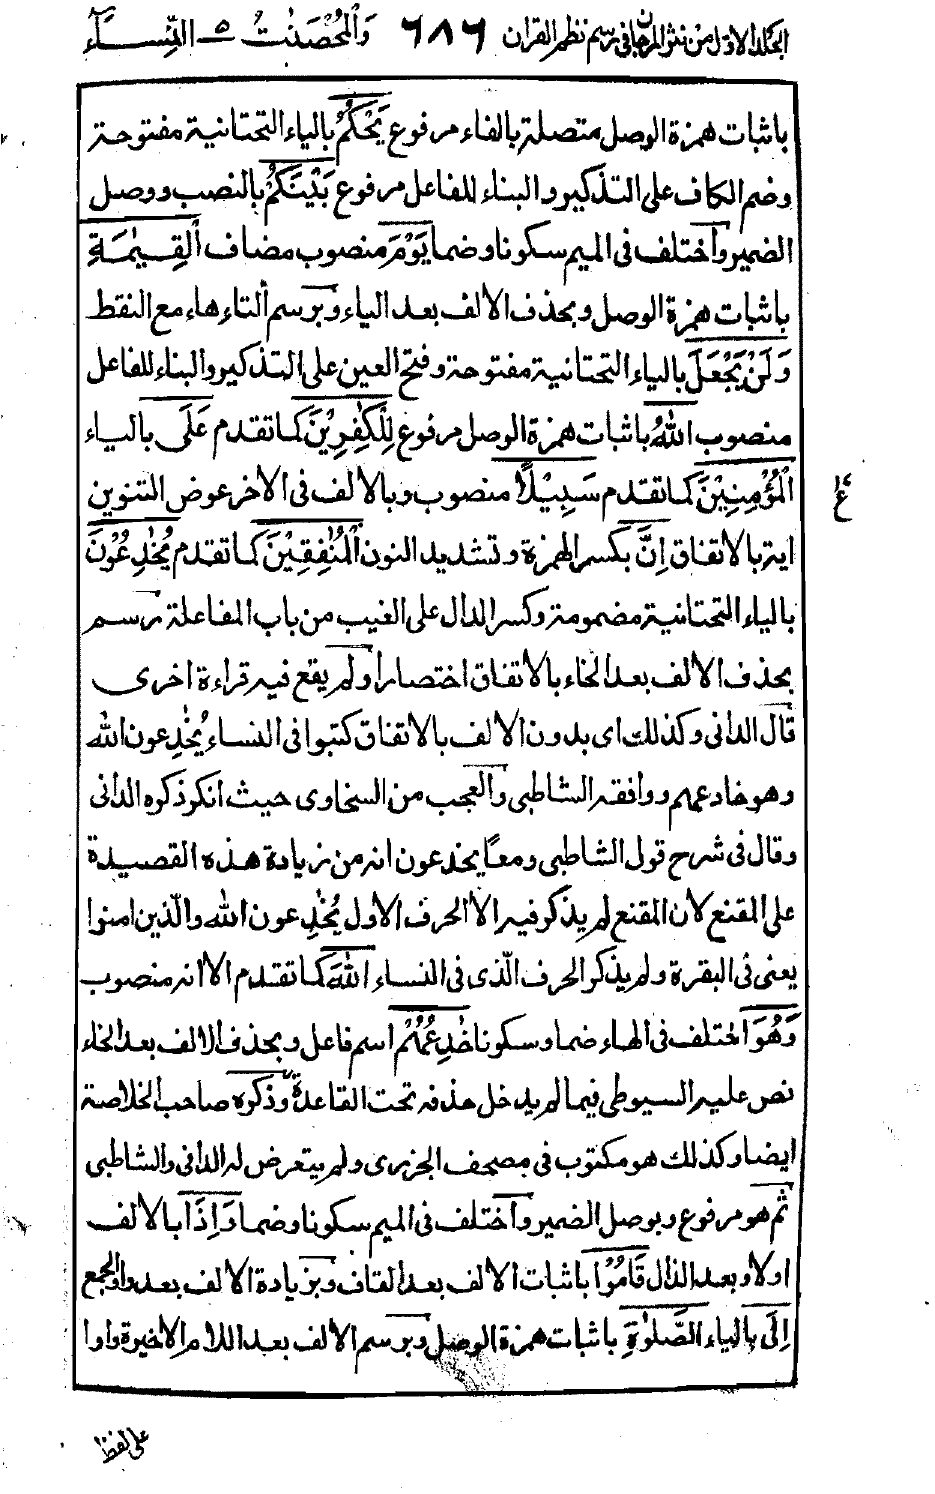 الجلد الاول من نثر المرجان فى رسم نظم القران ٦٨٦ وَالْمُحْصَنٰتُ ٥ النِّسَاء
باثبات همزة الوصل متصلة بالفاء مرفوع يَحْكُمُ بالياء التحتانية مفتوحة
وضم الكاف على التذكير والبناء للفاعل مرفوع بَيْنَكُمْ بالنصب ووصل
الضمير واختلف فى الميم سكونا وضما يَوْمَ منصوب مضاف الْقِيٰمَةِ
باثبات همزة الوصل وبحذف الالف بعد الياء وبرسم التاء هاء مع النقط
وَلَنْ يَجْعَلَ بالياء التحتانية مفتوحة وفتح العين على التذكير والبناء للفاعل
منصوب اللهُ باثبات همزة الوصل مرفوع لِلْكٰفِرِيْنَ كما تقدم عَلَى بالياء
الْمُؤْمِنِيْنَ كما تقدم سَبِيْلًا منصوب وبالالف فى الاخر عوض التنوين
اية بالاتفاق اِنَّ بكسر الهمزة وتشديد النون الْمُنٰفِقِيْنَ كما تقدم يُخٰدِعُوْنَ
بالياء التحتانية مضمومة وكسر الدال على الغيب من باب المفاعلة رسم
بحذف الالف بعد الخاء بالاتفاق اختصارا ولم يقع فيه قراءة اخرى
قال الدانى وكذلك اى بدون الالف بالاتفاق كتبوا فى النساء يُخٰدِعون الله
وهو خادعهم ووافقه الشاطبى والعجب من السخاوى حيث انكر ذكره الدانى
وقال فى شرح قول الشاطبى ومعًا يخدعون انه من زيادة هذه القصيدة
على المقنع لان المقنع لم يذكر فيه الا الحرف الاول يُخٰدِعون الله والّذين امنوا
يعنى فى البقرة ولم يذكر الحرف الّذى فى النساء اللهَ كما تقدم الا انه منصوب
وَهُوَ اختلف فى الهاء ضما وسكونا خٰدِعُهُمْ اسم فاعل وبحذف الالف بعد الخاء
نص عليه السيوطى فيما لم يدخل حذفه تحت القاعدة وذكره صاحب الخلاصة
ايضا وكذلك هو مكتوب فى مصحف الجزرى ولم يتعرض له الدانى والشاطبى
ثم هو مرفوع وبوصل الضمير واختلف فى الميم سكونا وضما وَاِذَا بالالف
اولا وبعد الذال قَامُوْا باثبات الالف بعد القاف وبزيادة الالف بعد واو الجمع
اِلَى بالياء الصَّلٰوةِ باثبات همزة الوصل وبرسم الالف بعد اللام الاخيرة واوا
على لفظ
ع